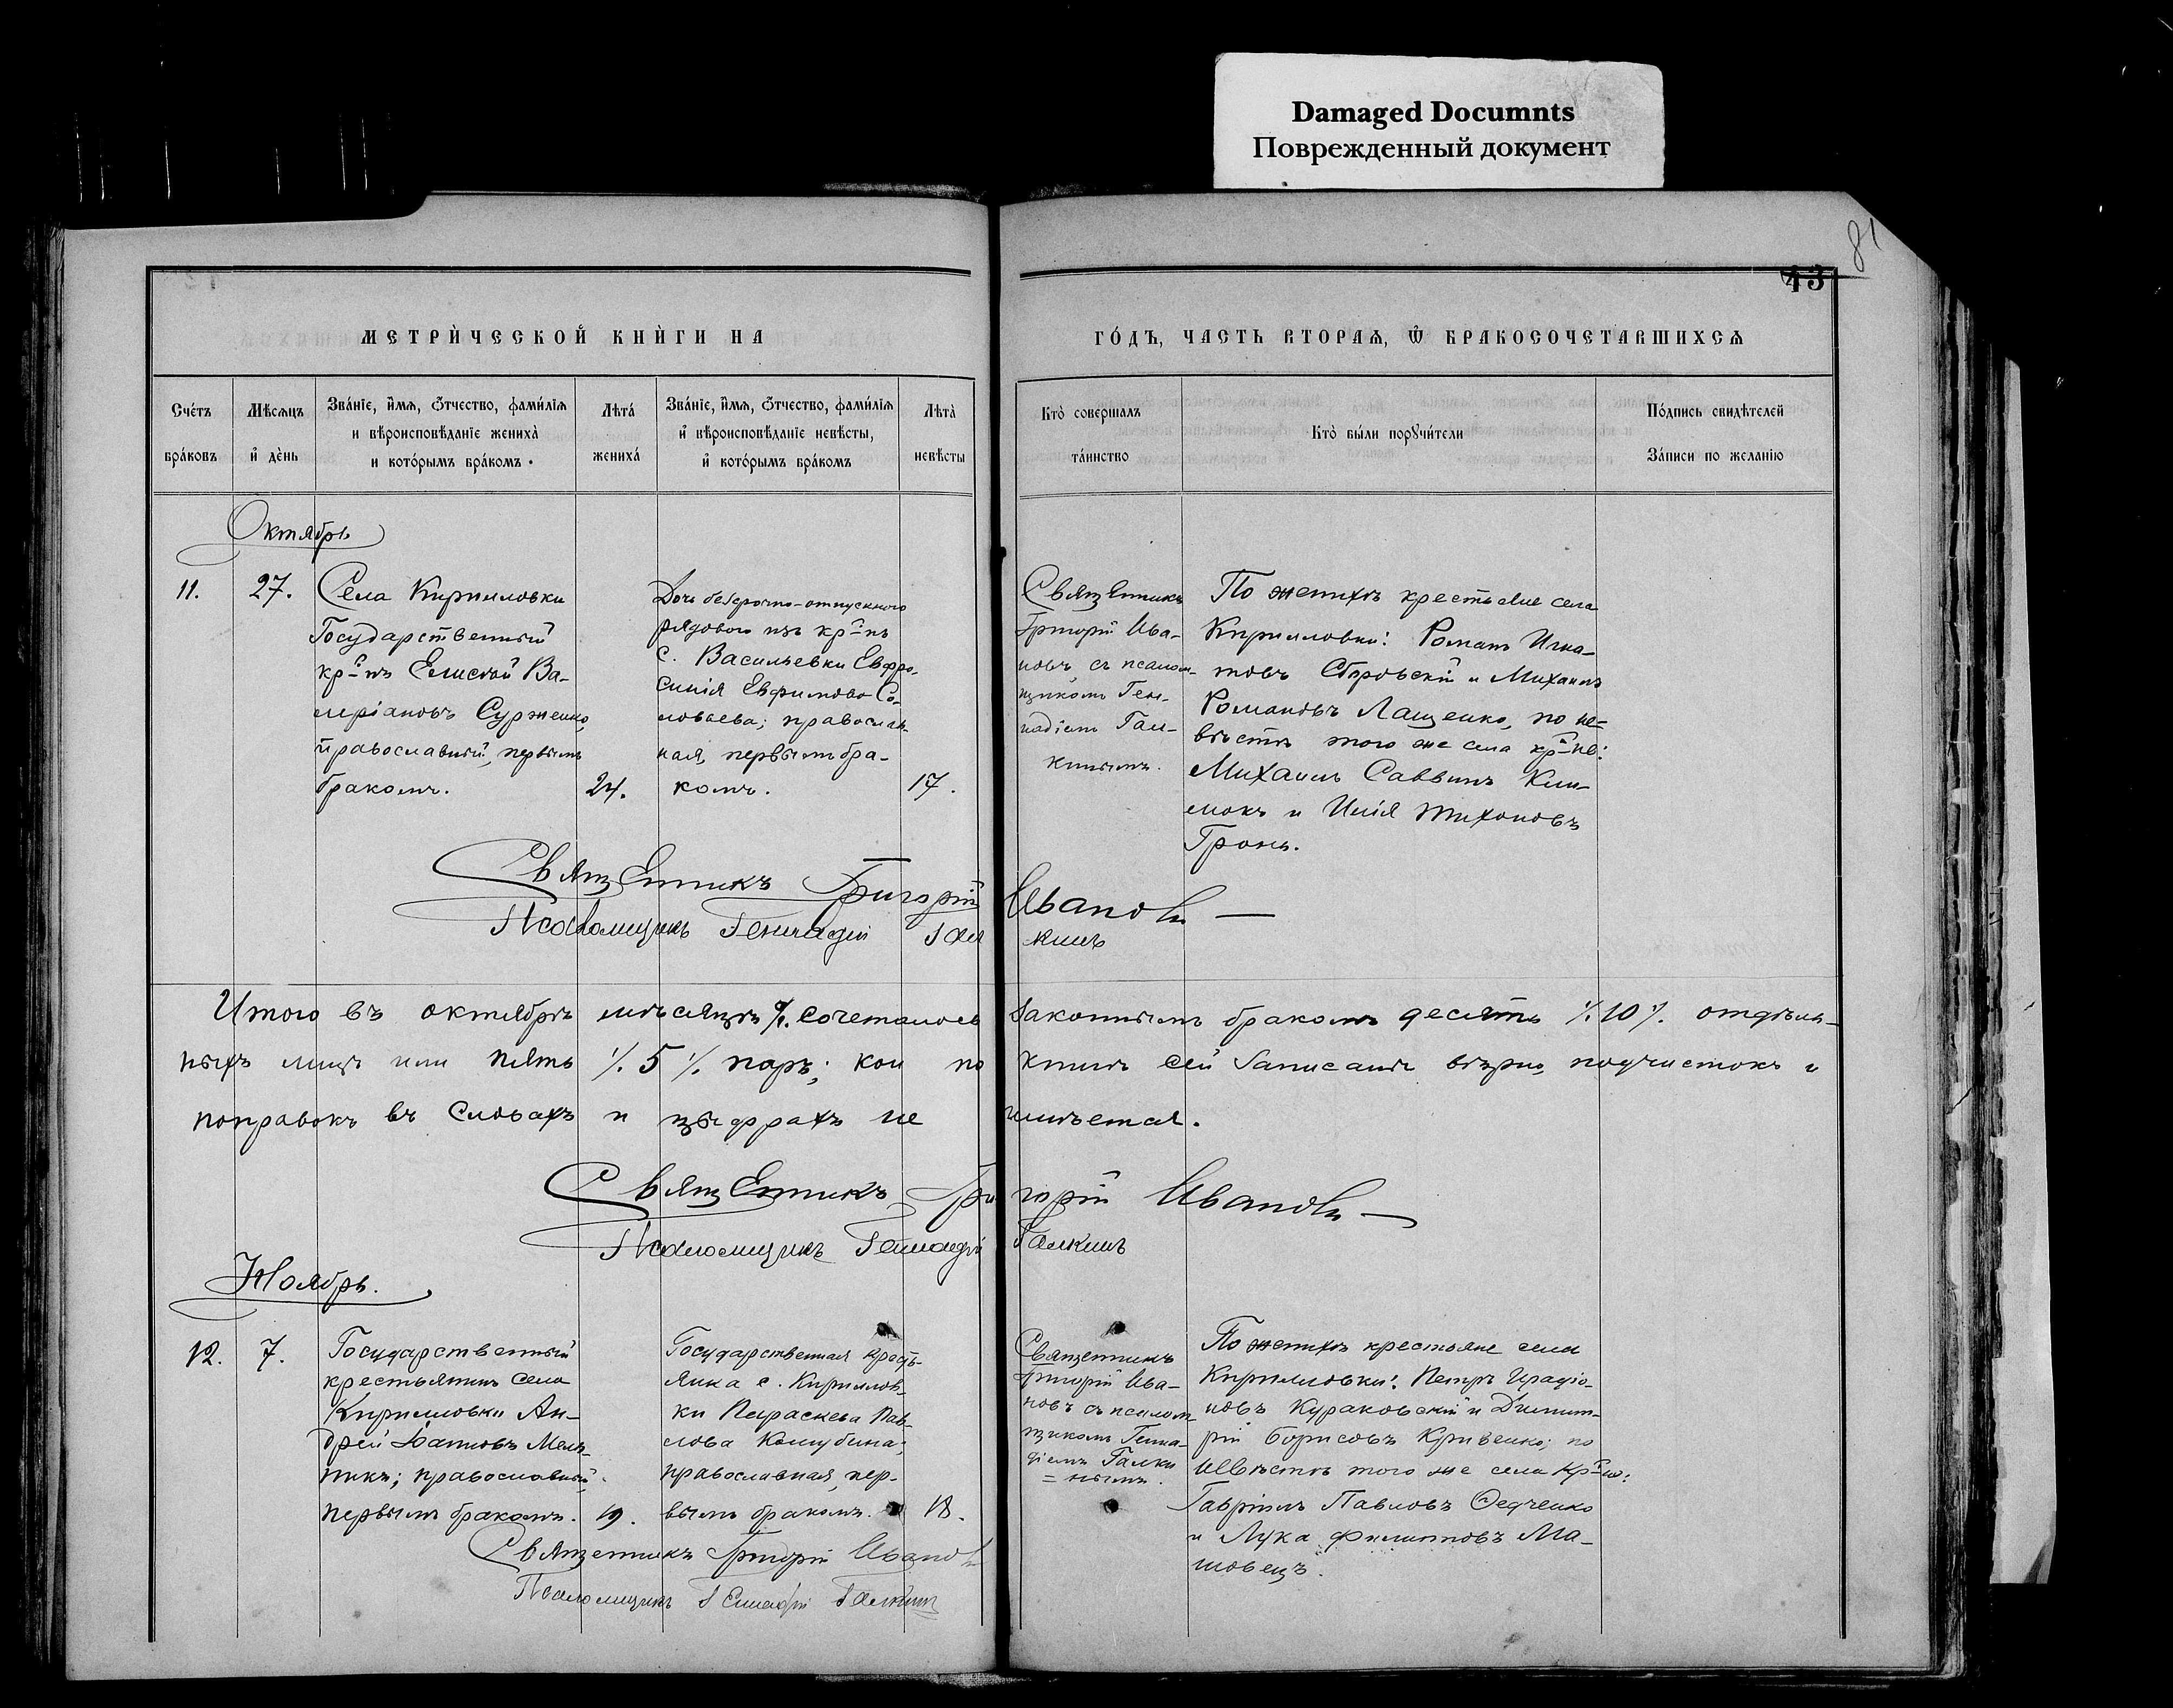 Damaged Documnts
Поврежденный документ
81
43
МЕТРИ́ЧЕСКОЙ КНИ́ГИ НА
ГО́ДЪ, ЧАСТЬ ВТОРАѦ, Ѡ БРАКОСОЧЕТАВШИХСѦ
Сче́тъ
бра́ковъ
Мѣсѧцъ
и де́нь
Зва́нїе, и́мѧ, ѻ҆́тчество, фами́лїѧ
и вѣроисповѣданїе жениха̀
и кото́рымъ бра́комъ.
Лѣта̀
жениха́
Зва́нїе, и́мѧ, ѻ҆́тчество, фами́лїѧ
и҆ вѣроисповѣданїе невѣсты,
и҆ кото́рымъ бра́комъ
Лѣта̀
невѣсты
Кто̀ соверша́лъ
та́инство
Кто̀ бы́ли порꙋчи́тели
По́дпись свидѣтелей
За́писи по желанїю
Октябрь
11.
27.
Села Кирилловки
Государственный
кр-нъ Елисей Ва-
леріановъ Сурженко,
православный, первымъ
бракомъ.
24.
Дочь безсрочно-отпускного
рядового изъ кр-нъ
с. Васильевки Евфро-
синія Евфимова Со-
ловьева; православ-
ная, первымъ бра-
комъ.
17.
Священникъ
Григорій Ива-
новъ съ псалом-
щикомъ Ген-
надіемъ Гал-
кинымъ.
По женихѣ крестьяне села
Кирилловки: Романъ Игна-
товъ Сбровскій и Михаилъ
Романовъ Лащенко, по не-
вѣстѣ того же села кр-не:
Михаилъ Саввинъ Кли-
мокъ и Илія Тихоновъ
Гронь.
Священникъ Григорій Ивановъ
Псаломщикъ Геннадій Галкинъ
Итого въ октябрѣ мѣсяцѣ сочеталось законнымъ бракомъ десять ⁒10⁒ отдѣль-
ныхъ лицъ или пять ⁒5⁒ паръ; кои по книгѣ сей записаны вѣрно, подчистокъ и
поправокъ въ словахъ и цыфрахъ не имѣется.
Священникъ Григорій Ивановъ
Псаломщикъ Геннадій Галкинъ
Ноябрь.
12.
7.
Государственный
крестьянинъ села
Кирилловки Ан-
дрей Іоанновъ Мель-
никъ; православный,
первымъ бракомъ.
19.
Государственная кресть-
янка с. Кириллов-
ки Параскева Пав-
лова Кошубина;
православная, пер-
вымъ бракомъ.
18.
Священникъ
Григорій Ива-
новъ съ псалом-
щикомъ Генна-
діемъ Галки
=нымъ.
По женихѣ крестьяне села
Кирилловки: Петръ Иродіо-
новъ Кураковскій и Димит-
рій Борисовъ Кривенко; по
невѣстѣ того же села кр-не:
Гавріилъ Павловъ Федченко
и Лука Филипповъ Ма-
шовецъ.
Священникъ Григорій Ивановъ
Псаломщикъ Геннадій Галкинъ